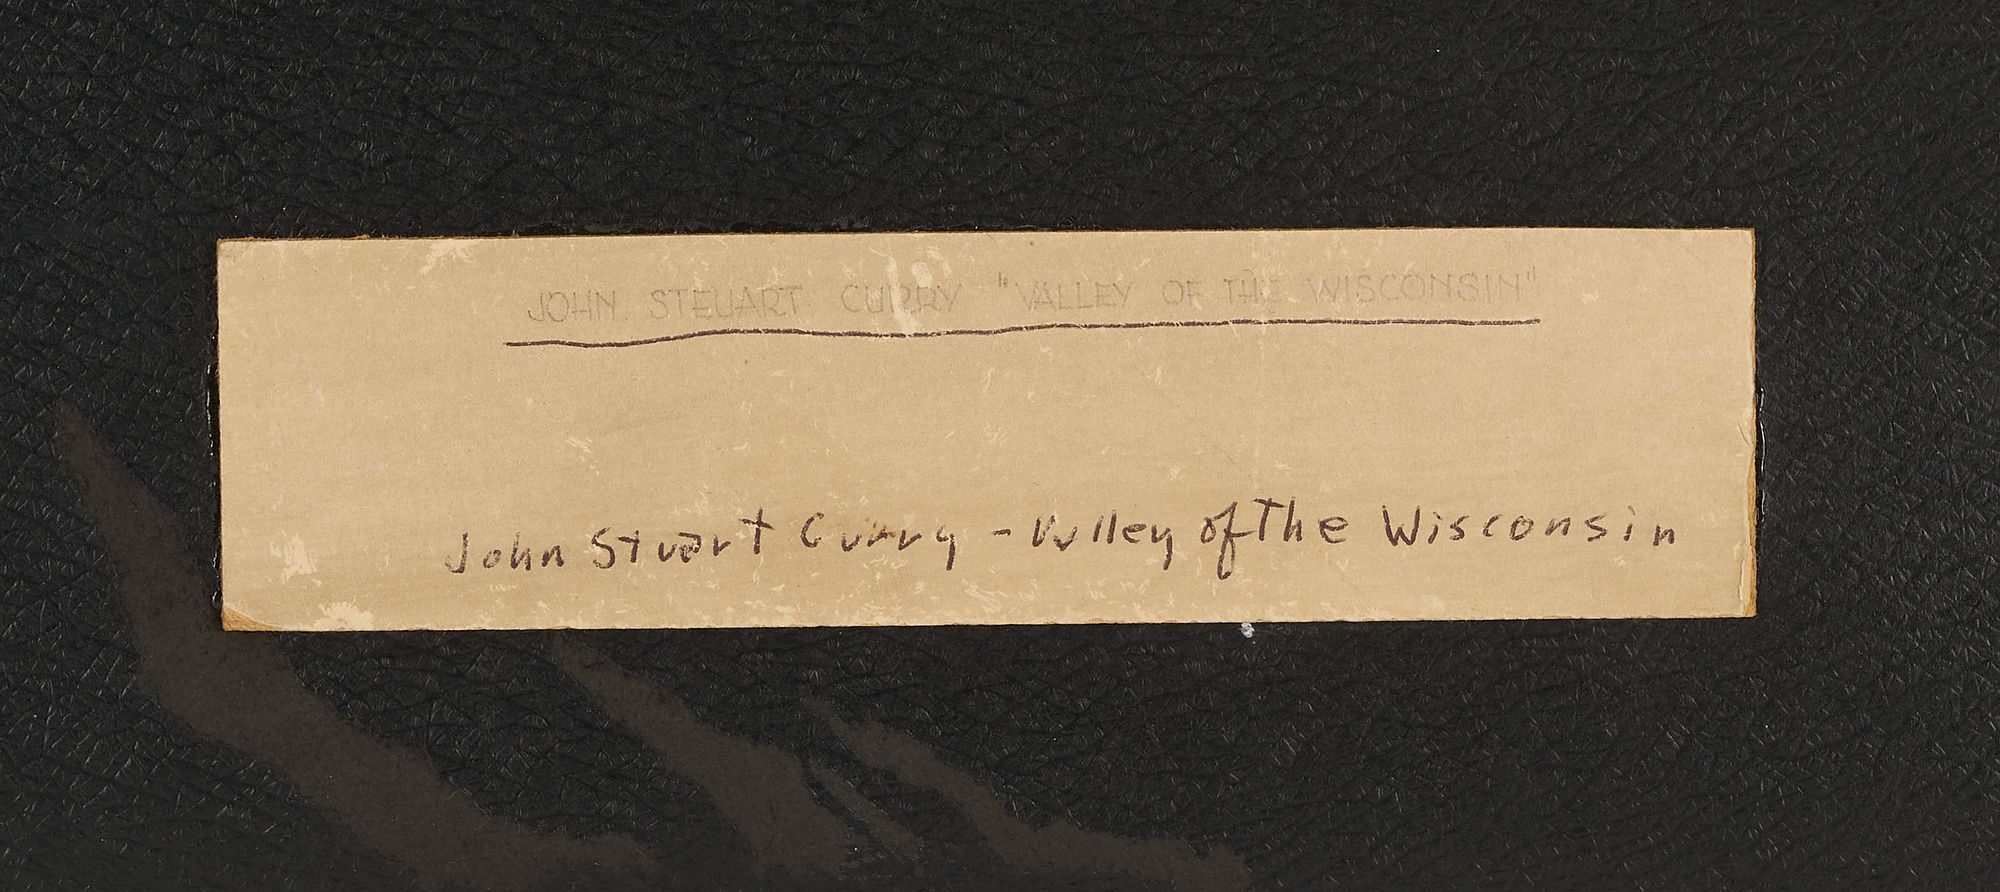 JOHN STEUART CURRY "VALLEY OF THE WISCONSIN"
John Stuart Curry - Valley of The Wisconsin